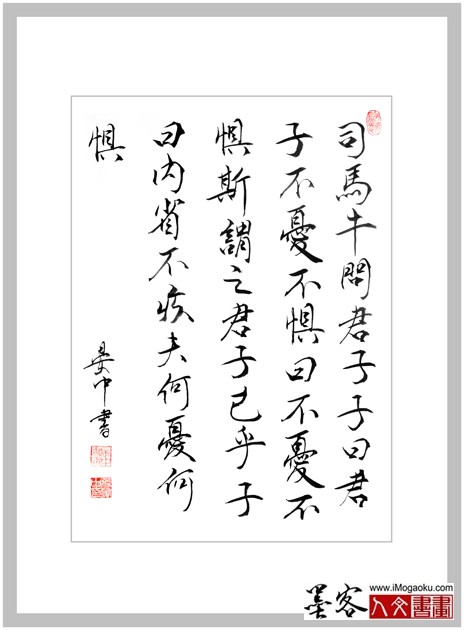 司馬牛問君子子曰君
子不憂不惧曰不憂不
惧斯謂之君子已乎子
曰內省不疚夫何憂何
惧
中書
墨客
www.iMogaoku.com
人文書畫